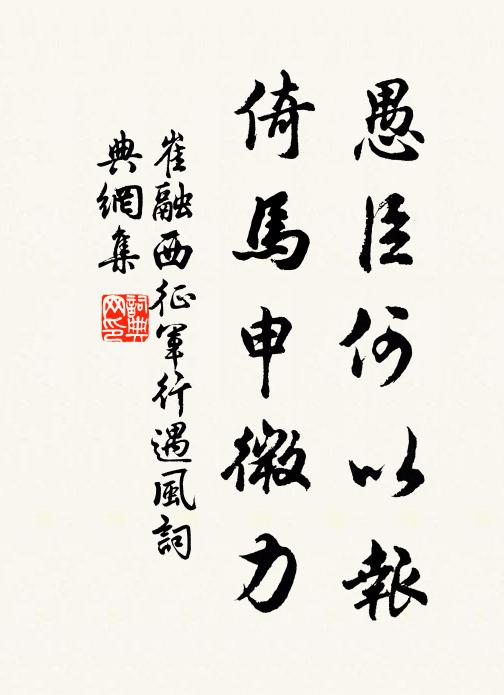 愚臣何以報
倚馬申微力
崔融西征軍行遇風詞
典網集
詞典网印